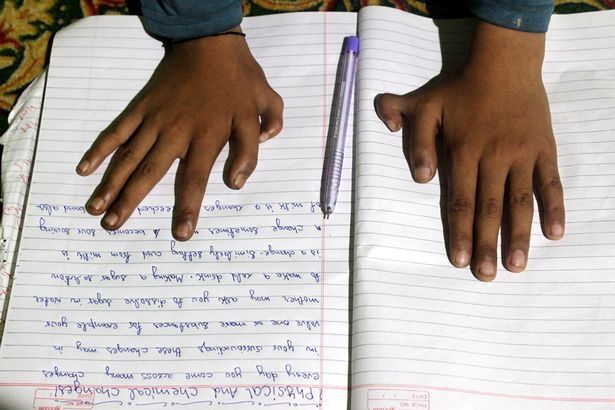 PAGE NO.
DATE
Physical And Chemical Changes:
every day you come across many changes
in your surroundings these changes may in
volve one or more substances for example your
mother may ask you to dissolve sugar in water
to make a cold drink. Making a sugar solution
is a change. Similarly setting curd from milk is
a change sometimes becomes sour
of milk is a changes also
PAGE NO.
DATE